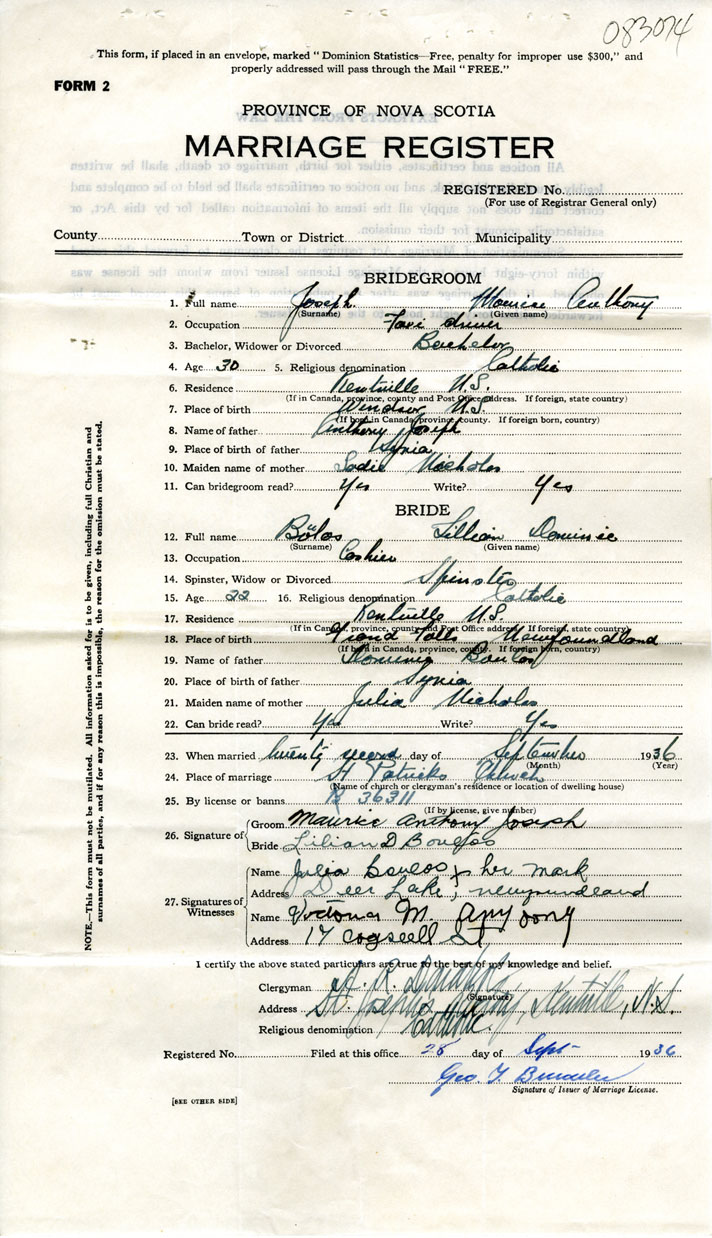 083074
This form, if placed in an envelope, marked "Dominion Statistics—Free, penalty for improper use $300," and
properly addressed will pass through the Mail "FREE."
FORM 2
PROVINCE OF NOVA SCOTIA
MARRIAGE REGISTER
REGISTERED No.
(For use of Registrar General only)
County Town or District Municipality
BRIDEGROOM
1. Full name Joseph Maurice Anthony
(Surname) (Given name)
2. Occupation Taxi driver
3. Bachelor, Widower or Divorced Bachelor
4. Age 30 5. Religious denomination Catholic
6. Residence Kentville N.S.
(If in Canada, province, county and Post Office address. If foreign, state country)
7. Place of birth Windsor N.S.
(If born in Canada, province, county. If foreign born, country)
8. Name of father Anthony Joseph
9. Place of birth of father Syria
10. Maiden name of mother Sadie Nicholas
11. Can bridegroom read? Yes Write? Yes
BRIDE
12. Full name Bolos Lillian Dominic
(Surname) (Given name)
13. Occupation Cashier
14. Spinster, Widow or Divorced Spinster
15. Age 22 16. Religious denomination Catholic
17. Residence Kentville N.S.
(If in Canada, province, county and Post Office address. If foreign, state country)
18. Place of birth Grand Falls Newfoundland
(If born in Canada, province, county. If foreign born, country)
19. Name of father Boulos
20. Place of birth of father Syria
21. Maiden name of mother Julia Nicholas
22. Can bride read? Yes Write? Yes
23. When married twenty second day of September 1936
(Month) (Year)
24. Place of marriage St Patricks Church
(Name of church or clergyman's residence or location of dwelling house)
25. By license or banns B 36311
(If by license, give number)
26. Signature of
Groom Maurice Anthony Joseph
Bride Lilian D
27. Signatures of Witnesses
Name Julia Boulos x her mark
Address Deer Lake, newfoundland
Name M.
Address 17 Cogswell St
I certify the above stated particulars are true to the best of my knowledge and belief.
Clergyman
(Signature)
Address St. Joseph's Kentville, N.S.
Religious denomination Catholic
Registered No. Filed at this office 28 day of Sept 1936
Geo. T.
Signature of Issuer of Marriage License.
[SEE OTHER SIDE]
NOTE.—This form must not be mutilated. All information asked for is to be given, including full Christian and
surnames of all parties, and if for any reason this is impossible, the reason for the omission must be stated.